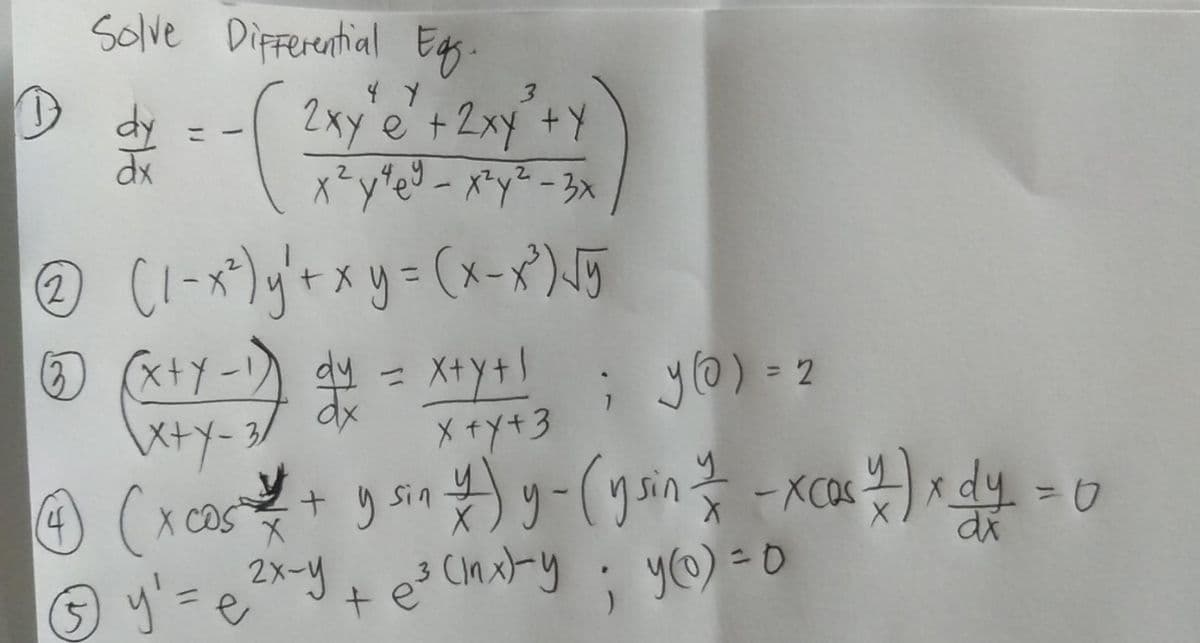 Solve Differential Eqs.
① dy/dx = -( (2xy⁴e^y + 2xy³ + y) / (x²y⁴e^y - x²y² - 3x) )
② (1-x²)y' + xy = (x-x³)√y
③ ((x+y-1)/(x+y-3)) dy/dx = (x+y+1)/(x+y+3) ; y(0) = 2
④ (x cos y/x + y sin y/x) y - (y sin y/x - x cos y/x) x dy/dx = 0
⑤ y' = e^(2x-y) + e^(3(ln x)-y) ; y(0) = 0